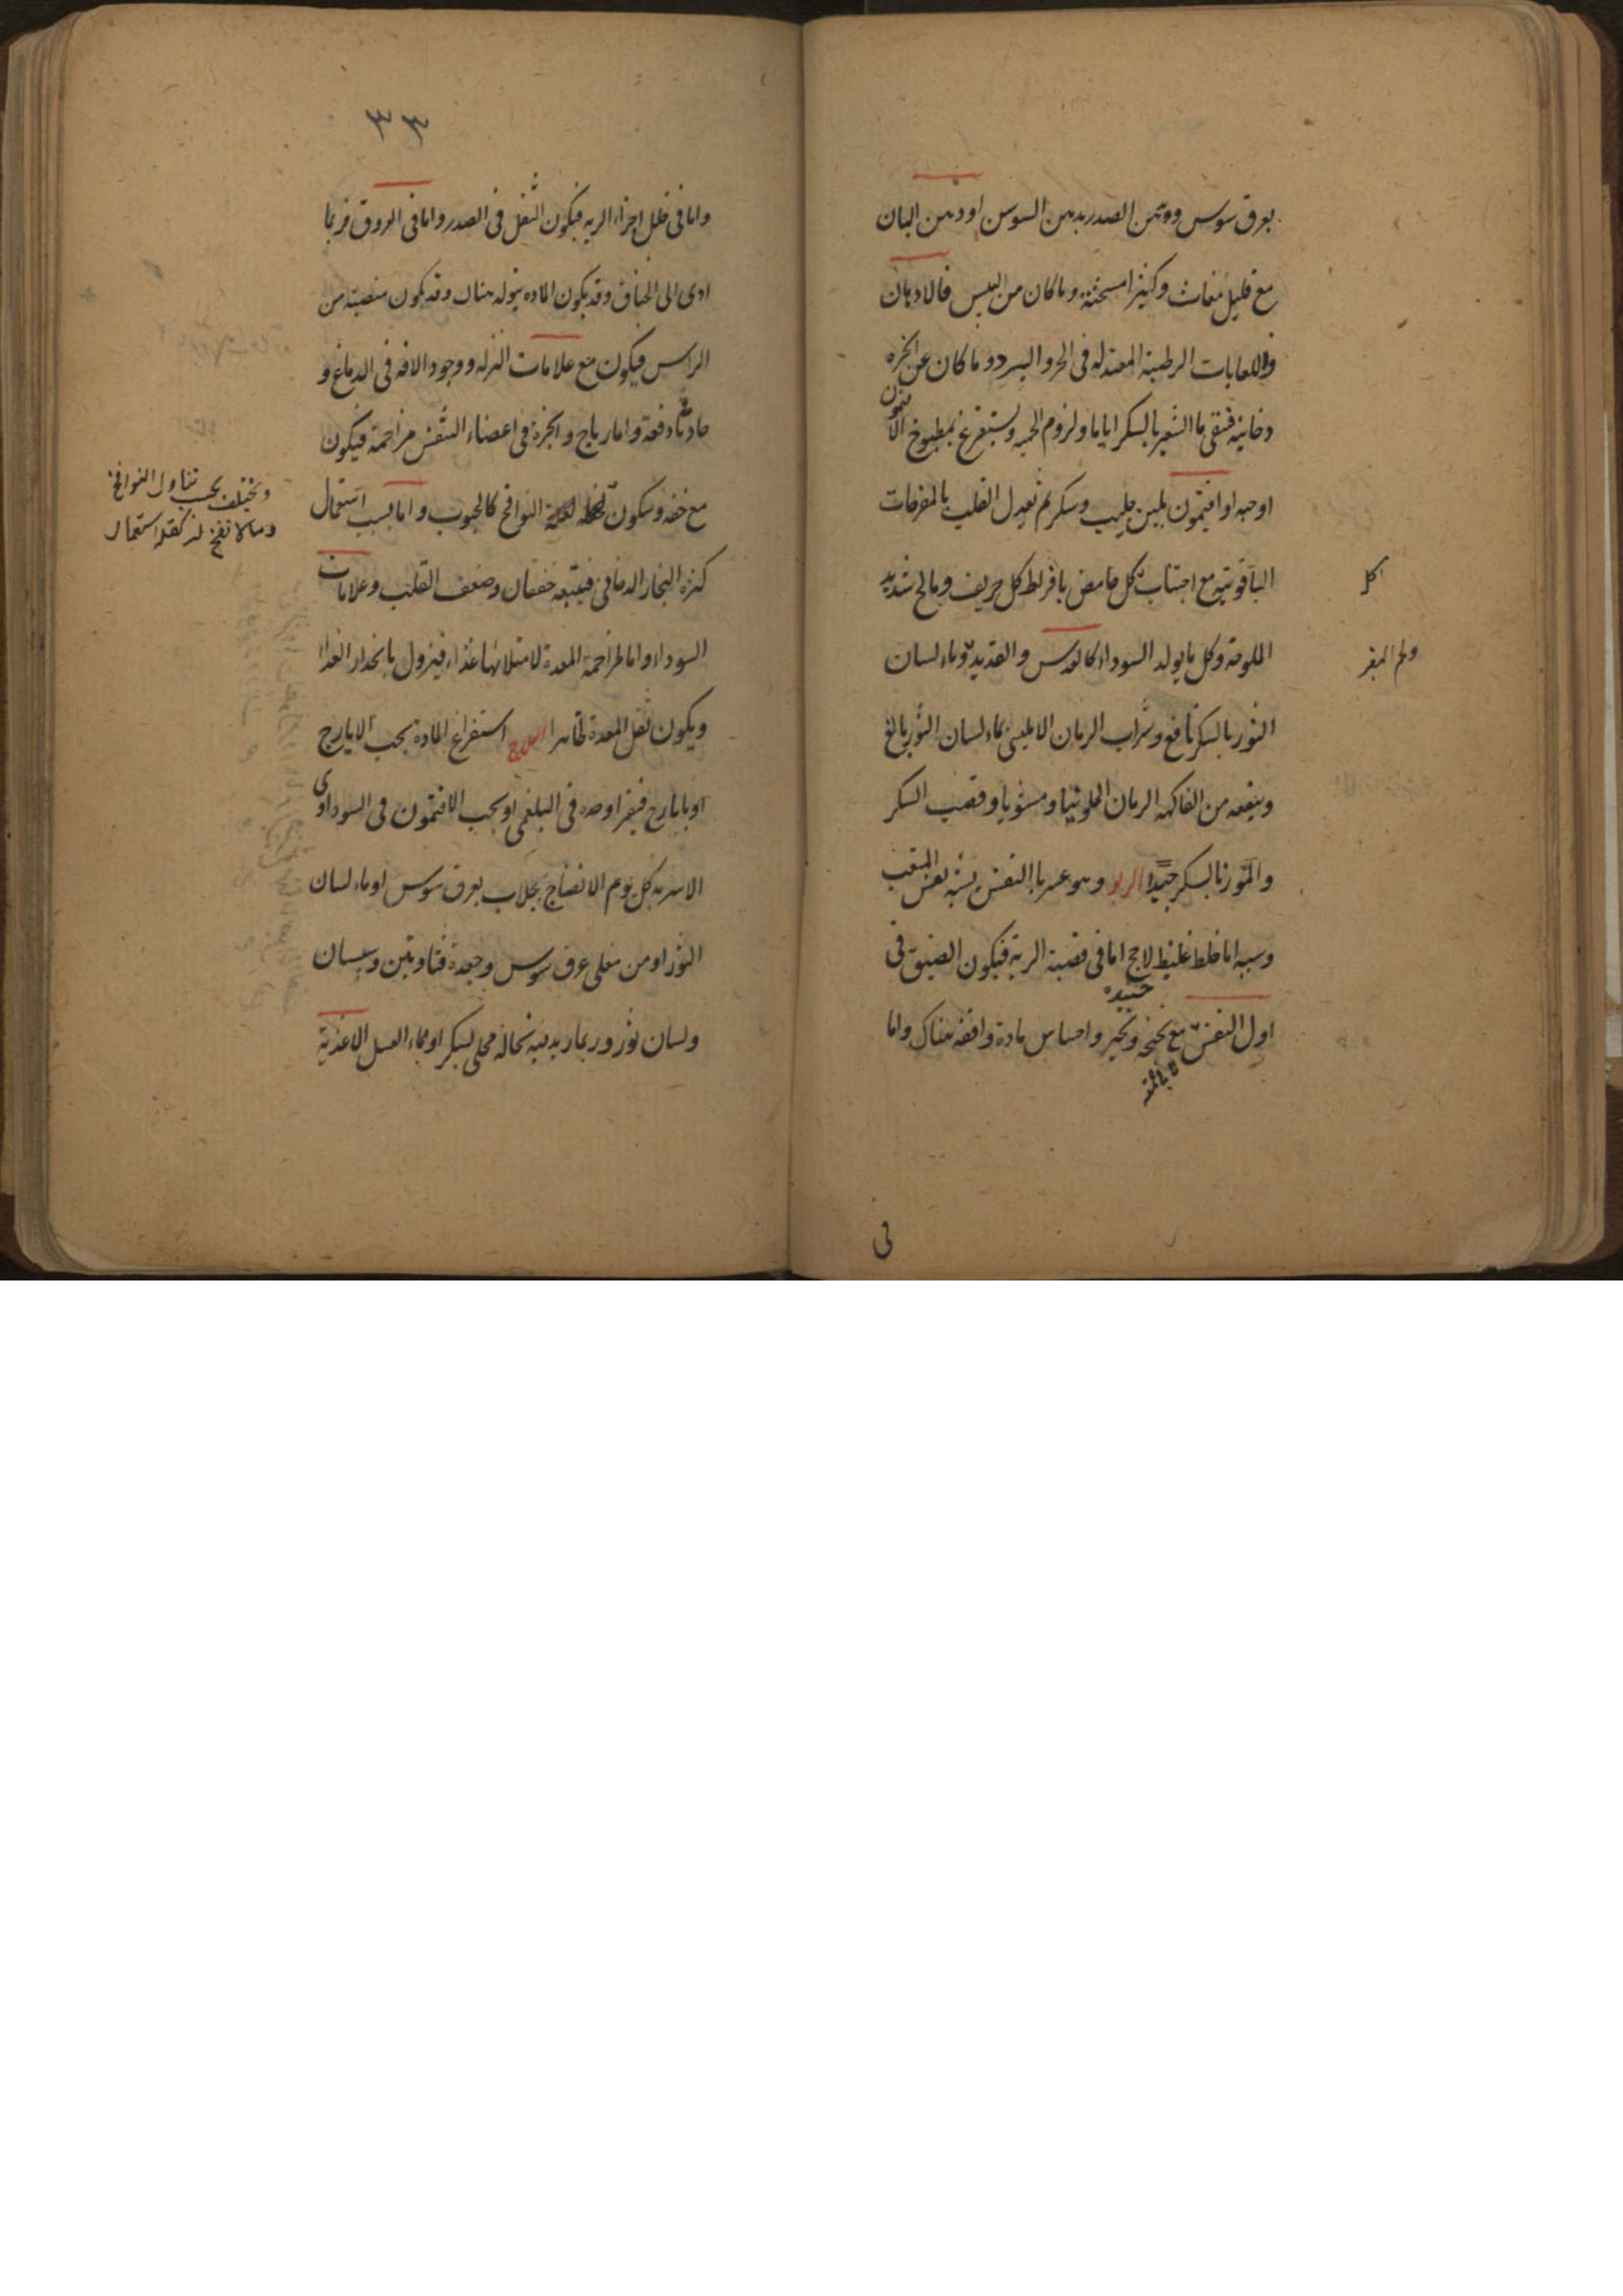 بعرق سوس ودهن الصدر بدهن السوسن اودهن البان
مع قليل مغاث وكثيرا مسحنة وماكان من اليبس فالادهان
واللعابات الرطبة المعتدله فى الحر والبرد وماكان عن ابخره
دخانيه فنقى ماالشعير بالسكر اياما ولزوم الحميه ويستفرغ بمطبوخ الافتيمون
اوحبه اوافتيمون بلبن حليب وسكر ثم تعديل القلب بالمفرحات
الياقوتيه مع اجتناب كل حامض بافراط كل حريف ومالح شديد
اكل
الملوحه وكل مايولد السودا كالعدس والقديد وماء لسان
ولحم البقر
الثور بالسكر نافع وشراب الرمان الامليسى بماء لسان الثور بالغ
وينفعه من الفاكهه الرمان الحلو نيا ومشويا وقصب السكر
والموز بالسكر جيد الربو وهو عسر ياالنفس يشبه نفس المتعب
وسببه اماخلط غليظ لاحج امافى قصبة الرية فيكون الضيق فى
اول النفس مع نحنحه وتخير واحساس مادة واقفه هناك واما
فى
٣٣
وامافى خلل اجزاء الريه فيكون الثقل فى الصدر وامافى العروق فربما
ادى الى الخناق وقد يكون الماده يتولد هناك وقد يكون منصبته من
الراس فيكون مع علامات النزله ووجود الافه فى الدماغ و
حادثا دفعة واما رياح وابخرة فى اعضاء التنفس مزاحمة فيكون
مع خفه وسكون النوافخ كالحبوب واما بسبب استعمال
ويختلف بحسب تناول النوافخ
ومالا نفخ له كقله استعمال
كثره البخار الدخانى فيتبعه خفقان وضعف القلب وعلامات
السوداء واما لمزاحمة المعدة لامتلائها غذاء فيزول بانحدار الغذا
ويكون ثقل المعدة ظاهرا العلاج استفراغ المادة بحب الايارج
اوبايارج فيقرا وحده فى البلغمى اوبحب الافتيمون فى السوداوى
الاشربه كل يوم الانضاج بجلاب بعرق سوس اوماء لسان
الثور اومن مغلى عرق سوس وجعدة فتاوتين وسبستان
ولسان ثور وربما زيد فيه نخالة محلى بسكر اوبماء العسل الاغذية